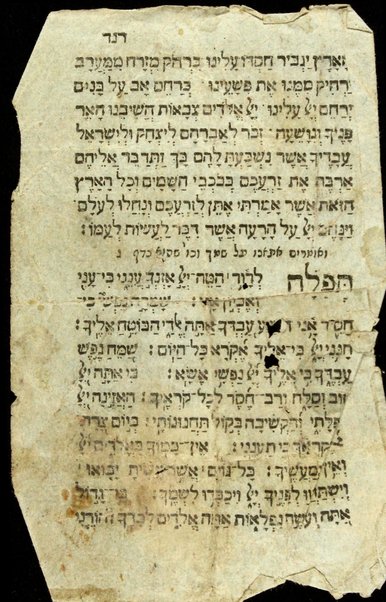 רנד
וָאָרֶץ יַגְבִּיר חַסְדּוֹ עָלֵינוּ כִּרְחֹק מִזְרָח מִמַּעֲרָב
יַרְחִיק מִמֶּנּוּ אֶת פְּשָׁעֵינוּ׃ כְּרַחֵם אָב עַל בָּנִים
יְרַחֵם יְיָ עָלֵינוּ׃ יְיָ אֱלֹדִים צְבָאוֹת הֲשִׁיבֵנוּ הָאֵר
פָּנֶיךָ וְנִוָּשֵׁעָה׃ זְכֹר לְאַבְרָהָם לְיִצְחָק וּלְיִשְׂרָאֵל
עֲבָדֶיךָ אֲשֶׁר נִשְׁבַּעְתָּ לָהֶם בָּךְ וַתְּדַבֵּר אֲלֵיהֶם
אַרְבֶּה אֶת זַרְעֲכֶם כְּכֹכְבֵי הַשָּׁמַיִם וְכָל הָאָרֶץ
הַזֹּאת אֲשֶׁר אָמַרְתִּי אֶתֵּן לְזַרְעֲכֶם וְנָחֲלוּ לְעֹלָם
וַיִּנָּחֶם יְיָ עַל הָרָעָה אֲשֶׁר דִּבֶּר לַעֲשׂוֹת לְעַמּוֹ׃
ואומרים אתאנו על שמך וכו בדף
תְּפִלָּה לְדָוִד הַטֵּה יְיָ אָזְנְךָ עֲנֵנִי כִּי עָנִי
וְאֶבְיוֹן אָנִי׃ שָׁמְרָה נַפְשִׁי כִּי
חָסִיד אָנִי עַבְדְּךָ אַתָּה אֱלֹדַי הַבּוֹטֵחַ אֵלֶיךָ׃
חָנֵּנִי יְיָ כִּי אֵלֶיךָ אֶקְרָא כָּל הַיּוֹם׃ שַׂמֵּחַ נֶפֶשׁ
עַבְדֶּךָ כִּי אֵלֶיךָ יְיָ נַפְשִׁי אֶשָּׂא׃ כִּי אַתָּה יְיָ
טוֹב וְסַלָּח וְרַב חֶסֶד לְכָל קֹרְאֶיךָ׃ הַאֲזִינָה יְיָ
תְּפִלָּתִי וְהַקְשִׁיבָה בְּקוֹל תַּחֲנוּנוֹתָי׃ בְּיוֹם צָרָתִי
אֶקְרָאֶךָּ כִּי תַעֲנֵנִי׃ אֵין כָּמוֹךָ בָאֱלֹדִים יְיָ
וְאֵין כְּמַעֲשֶׂיךָ׃ כָּל גּוֹיִם אֲשֶׁר עָשִׂיתָ יָבוֹאוּ
וְיִשְׁתַּחֲווּ לְפָנֶיךָ יְיָ וִיכַבְּדוּ לִשְׁמֶךָ׃ כִּי גָדוֹל
אַתָּה וְעֹשֵׂה נִפְלָאוֹת אַתָּה אֱלֹדִים לְבַדֶּךָ׃ הוֹרֵנִי